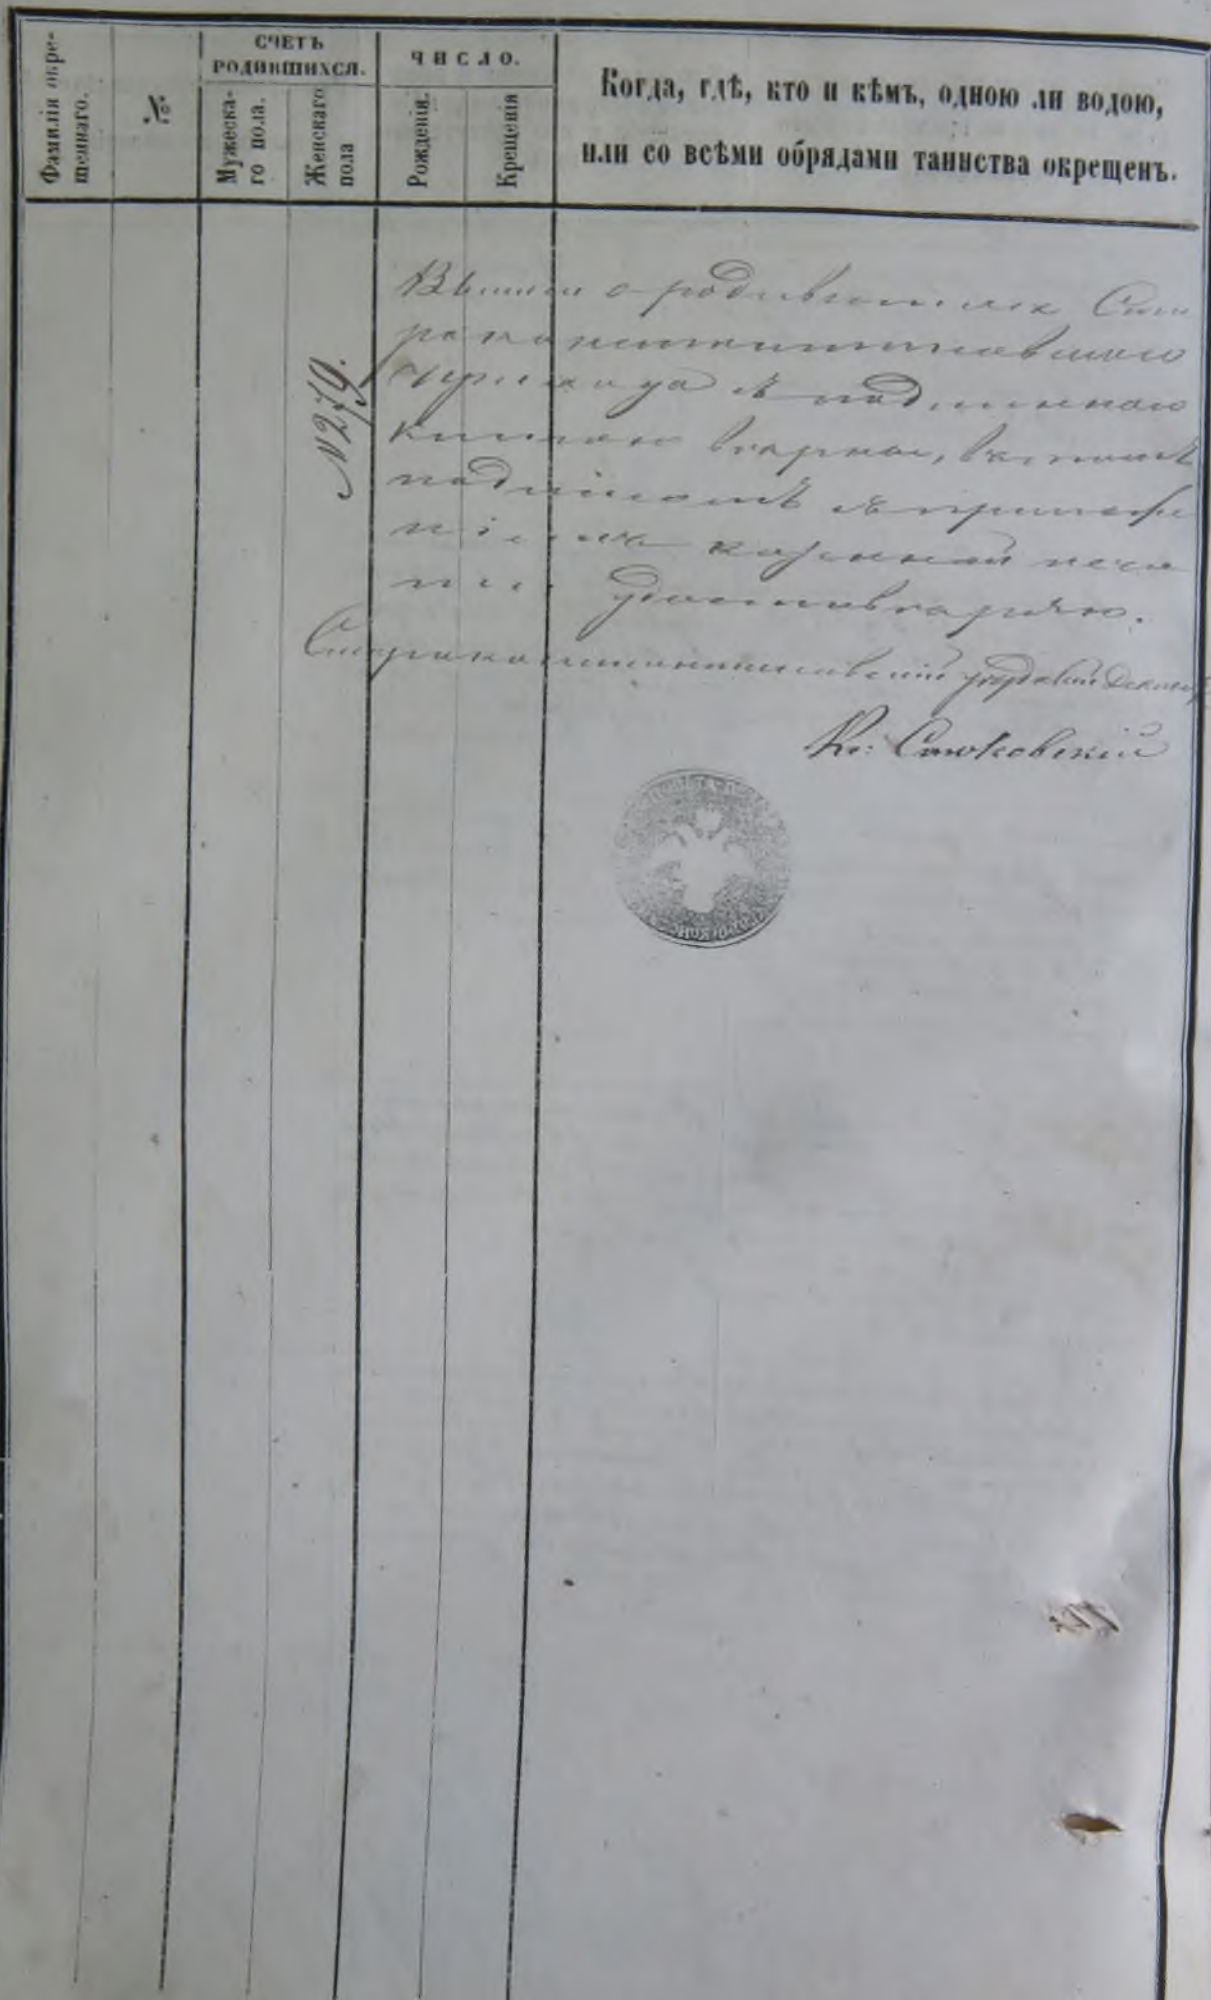 Фамилія окре-
щеннаго.
№
СЧЕТЪ
РОДИВШИХСЯ.
Мужеска-
го пола.
Женскаго
пола
ЧИСЛО.
Рожденія.
Крещенія
Когда, гдѣ, кто и кѣмъ, одною ли водою,
или со всѣми обрядами таинства окрещенъ.
№ 279.
о родившихся Ста
роконстантиновскаго
прихода съ подлинною
книгою вѣрна, въ томъ
подписомъ съ приложе
ніемъ казенной печа
ти удостовѣряю.
Староконстантиновскій Декан
Кс: Стоковскій